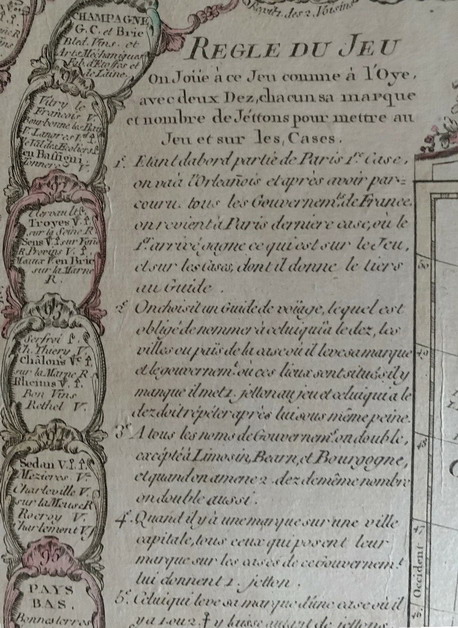 CHAMPAGNE
G. C. et Brie
Bled. Vins. et
Arts Mèchaniques
Fab. d'Etoffes et
de Laine.
Vitry le
François V.
Bourbonne les Bains
V. Langres V.
en Bassigni
Troyes V.
sur la Seine R.
Sens V. sur
Provins V.
en Brie
sur la Marne
R.
Ch. Thiery
Châlons V.
sur la Marne R.
Rheims V.
Bon Vins
Rethel V.
Sedan V.
Mezieres V.
Charleville V.
sur la Meuse R.
Rocroy V.
Charlemont V.
PAYS
BAS.
Bonnes terres
REGLE DU JEU
On Joüe à ce Jeu comme à l'Oye,
avec deux Dez, chacun sa marque
et nombre de Jéttons pour mettre au
Jeu et sur les Cases.
1°. Etant d'abord partie de Paris 1re. Case,
on va à l'Orleañois et après avoir par-
couru tous les Gouvernemts. de France,
on revient à Paris derniere case, où le
1er. arrivé gagne ce qui est sur le Jeu,
et sur les Cases, dont il donne le tiers
au Guide.
2°. On choisit un Guide de voÿage, lequel est
obligé de nommer à celui qui a le dez, les
villes ou païs de la case où il leve sa marque
et le gouvernemt. où ces lieux sont situés s'il y
manque il met 1. jetton au jeu et celui qui a le
dez doit répéter après lui sous même peine.
3°. A tous les noms de Gouvernemt. on double,
excépté à Limosin, Bearn, et Bourgogne,
et quand on amene 2 dez de même nombre
on double aussi.
4°. Quand il y à une marque sur une ville
capitale, tous ceux qui posent leur
marque sur les cases de ce Gouvernemt.
lui donnent 1. jetton.
5°. Celui qui leve sa marque d'une case où il
y a 1 ou 2 ✝ y laisse autant de jettons
Occident